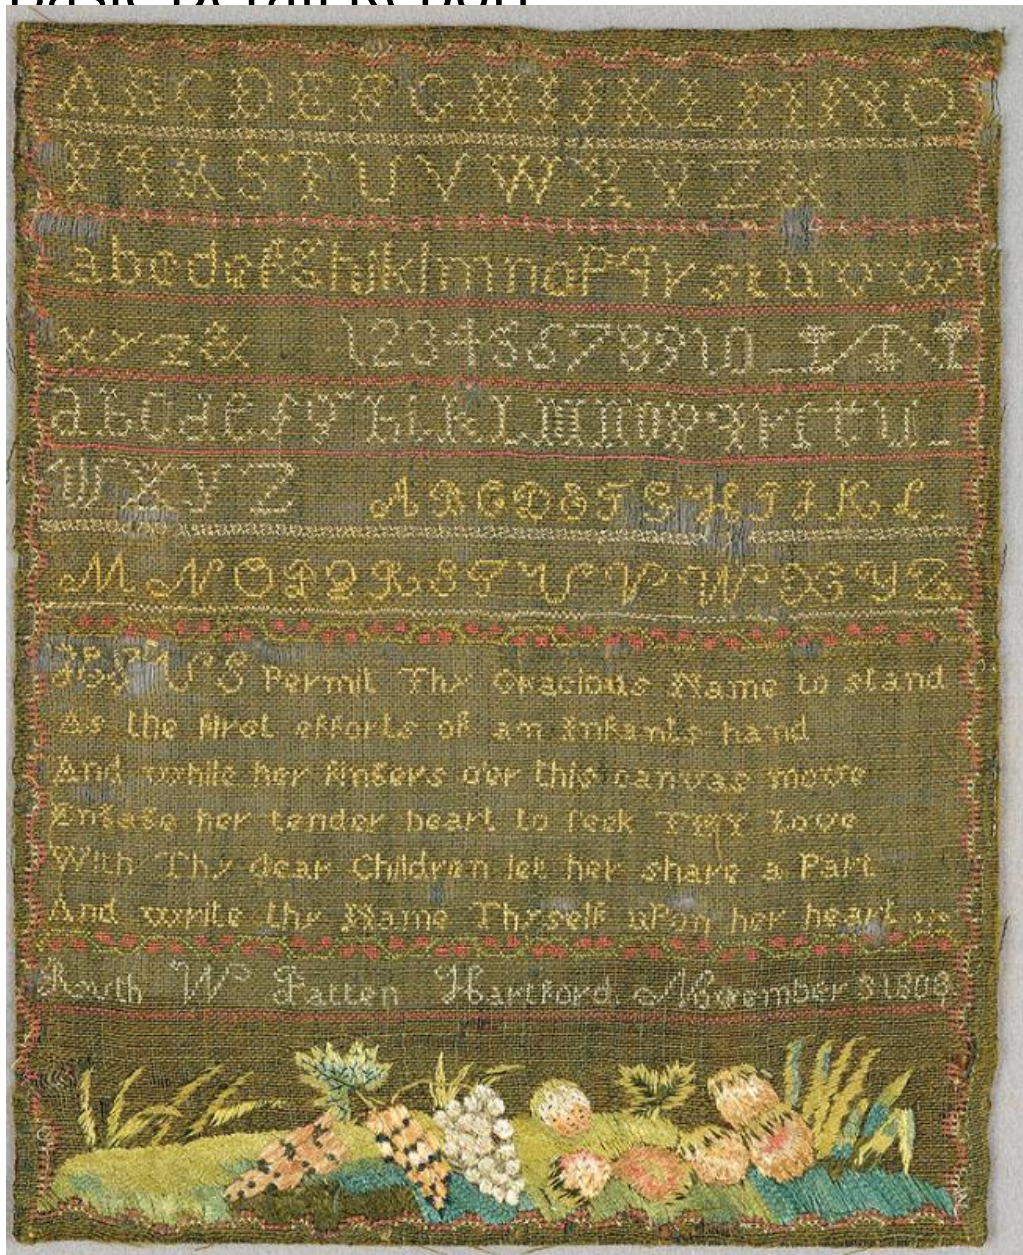 Basic Detail Report
A B C D E F G H I J K L M N O
P Q R S T U V W X Y Z &
a b c d e f g h i j k l m n o p q r s t u v w
x y z & 1 2 3 4 5 6 7 8 9 10
a b c d e f g h i k l m n o p q r ſ t u
w x y z A B C D E F G H I J K L
M N O P Q R S T U V W X Y Z
JESUS Permit Thy Gracious Name to stand
As the first efforts of an Infants hand
And while her fingers o'er this canvas move
Engage her tender heart to ſeek THY Love
With Thy dear Children let her share a Part
And write thy Name Thyself upon her heart
Ruth W Patten Hartford November